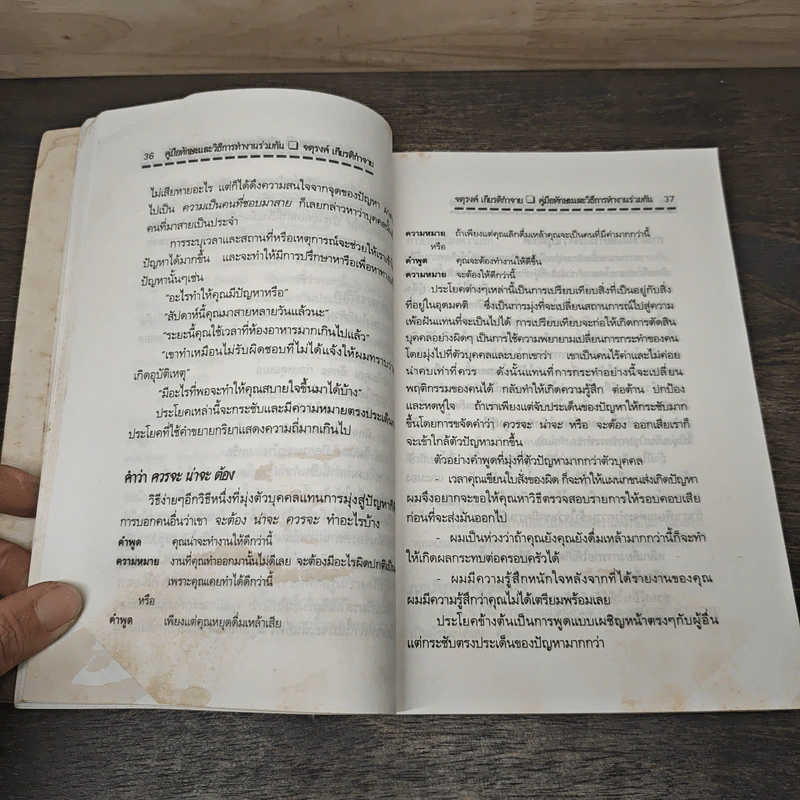 36 คู่มือทักษะและวิธีการทำงานร่วมกัน ❑ จตุรงค์ เกียรติกำจาย
ไม่เสียหายอะไร แต่ก็ได้ดึงความสนใจจากจุดของปัญหา
ไปเป็น ความเป็นคนที่ชอบมาสาย ก็เลยกล่าวหาว่าบุคคลนั้น
คนที่มาสายเป็นประจำ
การระบุเวลาและสถานที่หรือเหตุการณ์จะช่วยให้เรา
ปัญหาได้มากขึ้น และจะทำให้มีการปรึกษาหารือเพื่อหาทาง
ปัญหานั้นๆเช่น
"อะไรทำให้คุณมีปัญหาหรือ"
"สัปดาห์นี้คุณมาสายหลายวันแล้วนะ"
"ระยะนี้คุณใช้เวลาที่ห้องอาหารมากเกินไปแล้ว"
"เขาทำเหมือนไม่รับผิดชอบที่ไม่ได้แจ้งให้ผมทราบว่า
เกิดอุบัติเหตุ"
"มีอะไรที่พอจะทำให้คุณสบายใจขึ้นมาได้บ้าง"
ประโยคเหล่านี้จะกระชับและมีความหมายตรงประเด็น
ประโยคที่ใช้คำขยายกริยาแสดงความถี่มากเกินไป
คำว่า ควรจะ น่าจะ ต้อง
วิธีง่ายๆอีกวิธีหนึ่งที่มุ่งตัวบุคคลแทนการมุ่งสู่ปัญหา
การบอกคนอื่นว่าเขา จะต้อง น่าจะ ควรจะ ทำอะไรบ้าง
คำพูด คุณน่าจะทำงานให้ดีกว่านี้
ความหมาย งานที่คุณทำออกมานั้นไม่ดีเลย จะต้องมีอะไรผิดปกติ
เพราะคุณเคยทำได้ดีกว่านี้
หรือ
คำพูด เพียงแต่คุณหยุดดื่มเหล้าเสีย
จตุรงค์ เกียรติกำจาย ❑ คู่มือทักษะและวิธีการทำงานร่วมกัน 37
ความหมาย ถ้าเพียงแต่คุณเลิกดื่มเหล้าคุณจะเป็นคนที่มีค่ามากกว่านี้
หรือ
คำพูด คุณจะต้องทำงานให้ดีขึ้น
ความหมาย จะต้องให้ดีกว่านี้
ประโยคต่างๆเหล่านี้เป็นการเปรียบเทียบสิ่งที่เป็นอยู่กับสิ่ง
ที่อยู่ในอุดมคติ ซึ่งเป็นการมุ่งที่จะเปลี่ยนสถานการณ์ไปสู่ความ
เพ้อฝันแทนที่จะเป็นไปได้ การเปรียบเทียบจะก่อให้เกิดการตัดสิน
บุคคลอย่างผิดๆ เป็นการใช้ความพยายามเปลี่ยนการกระทำของคน
โดยมุ่งไปที่ตัวบุคคลและบอกเขาว่า เขาเป็นคนไร้ค่าและไม่ค่อย
น่าคบเท่าที่ควร ดังนั้นแทนที่การกระทำอย่างนี้จะเปลี่ยน
พฤติกรรมของคนได้ กลับทำให้เกิดความรู้สึก ต่อต้าน ปกป้อง
และหดหู่ใจ ถ้าเราเพียงแต่จับประเด็นของปัญหาให้กระชับมาก
ขึ้นโดยการขจัดคำว่า ควรจะ น่าจะ หรือ จะต้อง ออกเสียเราก็
จะเข้าใกล้ตัวปัญหามากขึ้น
ตัวอย่างคำพูดที่มุ่งที่ตัวปัญหามากกว่าตัวบุคคล
- เวลาคุณเขียนใบสั่งของผิด ก็จะทำให้แผนกขนส่งเกิดปัญหา
ผมจึงอยากจะขอให้คุณหาวิธีตรวจสอบรายการให้รอบคอบเสีย
ก่อนที่จะส่งมันออกไป
- ผมเป็นห่วงว่าถ้าคุณยังคุณยังดื่มเหล้ามากกว่านี้ก็จะทำ
ให้เกิดผลกระทบต่อครอบครัวได้
- ผมมีความรู้สึกหนักใจหลังจากที่ได้รายงานของคุณ
ผมมีความรู้สึกว่าคุณไม่ได้เตรียมพร้อมเลย
ประโยคข้างต้นเป็นการพูดแบบเผชิญหน้าตรงๆกับผู้อื่น
แต่กระชับตรงประเด็นของปัญหามากกว่า